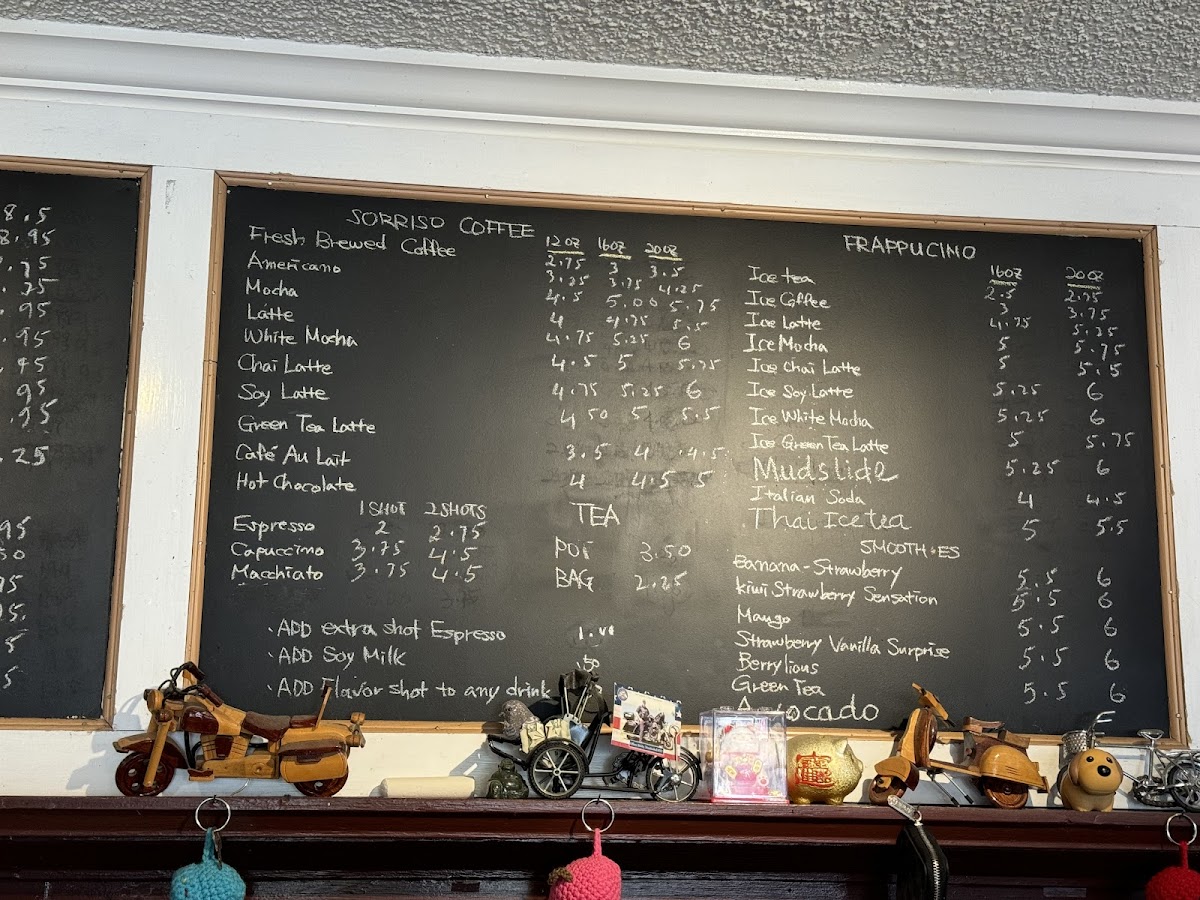 8.5
8.95
.95
.95
95
.25
95
50
SORRISO COFFEE
12oz 16oz 20oz
Fresh Brewed Coffee 2.75 3 3.5
Americano 3.25 3.75 4.25
Mocha 4.5 5.00 5.75
Latte 4 4.75 5.5
White Mocha 4.75 5.25 6
Chai Latte 4.5 5 5.75
Soy Latte 4.75 5.25 6
Green Tea Latte 4.50 5 5.5
Café Au Lait 3.5 4 4.5
Hot Chocolate 4 4.5 5
1 SHOT 2 SHOTS
Espresso 2 2.75
Capuccino 3.75 4.5
Macchiato 3.75 4.5
TEA
POT 3.50
BAG 2.25
. ADD extra shot Espresso
. ADD Soy Milk .50
. ADD Flavor shot to any drink
FRAPPUCINO
16oz 20oz
Ice tea 2.5 2.75
Ice Coffee 3 3.75
Ice Latte 4.75 5.25
Ice Mocha 5 5.75
Ice Chai Latte 5 5.5
Ice Soy Latte 5.25 6
Ice White Mocha 5.25 6
Ice Green Tea Latte 5 5.75
Mudslide 5.25 6
Italian Soda 4 4.5
Thai Ice tea 5 5.5
SMOOTHIES
Banana-Strawberry 5.5 6
kiwi Strawberry Sensation 5.5 6
Mango 5.5 6
Strawberry Vanilla Surprise 5.5 6
Berrylious
Green Tea 5.5 6
Avocado